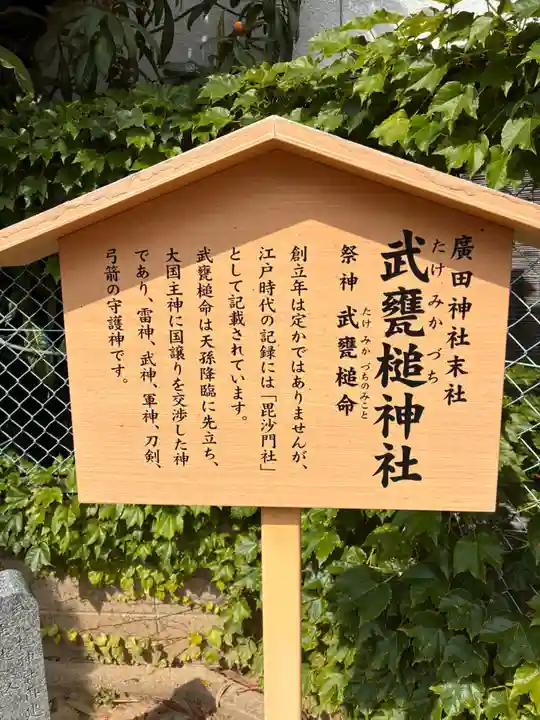 廣田神社末社
武甕槌神社
たけ みか づち
祭神 武甕槌命
たけ みか づちのみこと
創立年は定かではありませんが、
江戸時代の記録には「毘沙門社」
として記載されています。
武甕槌命は天孫降臨に先立ち、
大国主神に国譲りを交渉した神
であり、雷神、武神、軍神、刀剣、
弓箭の守護神です。